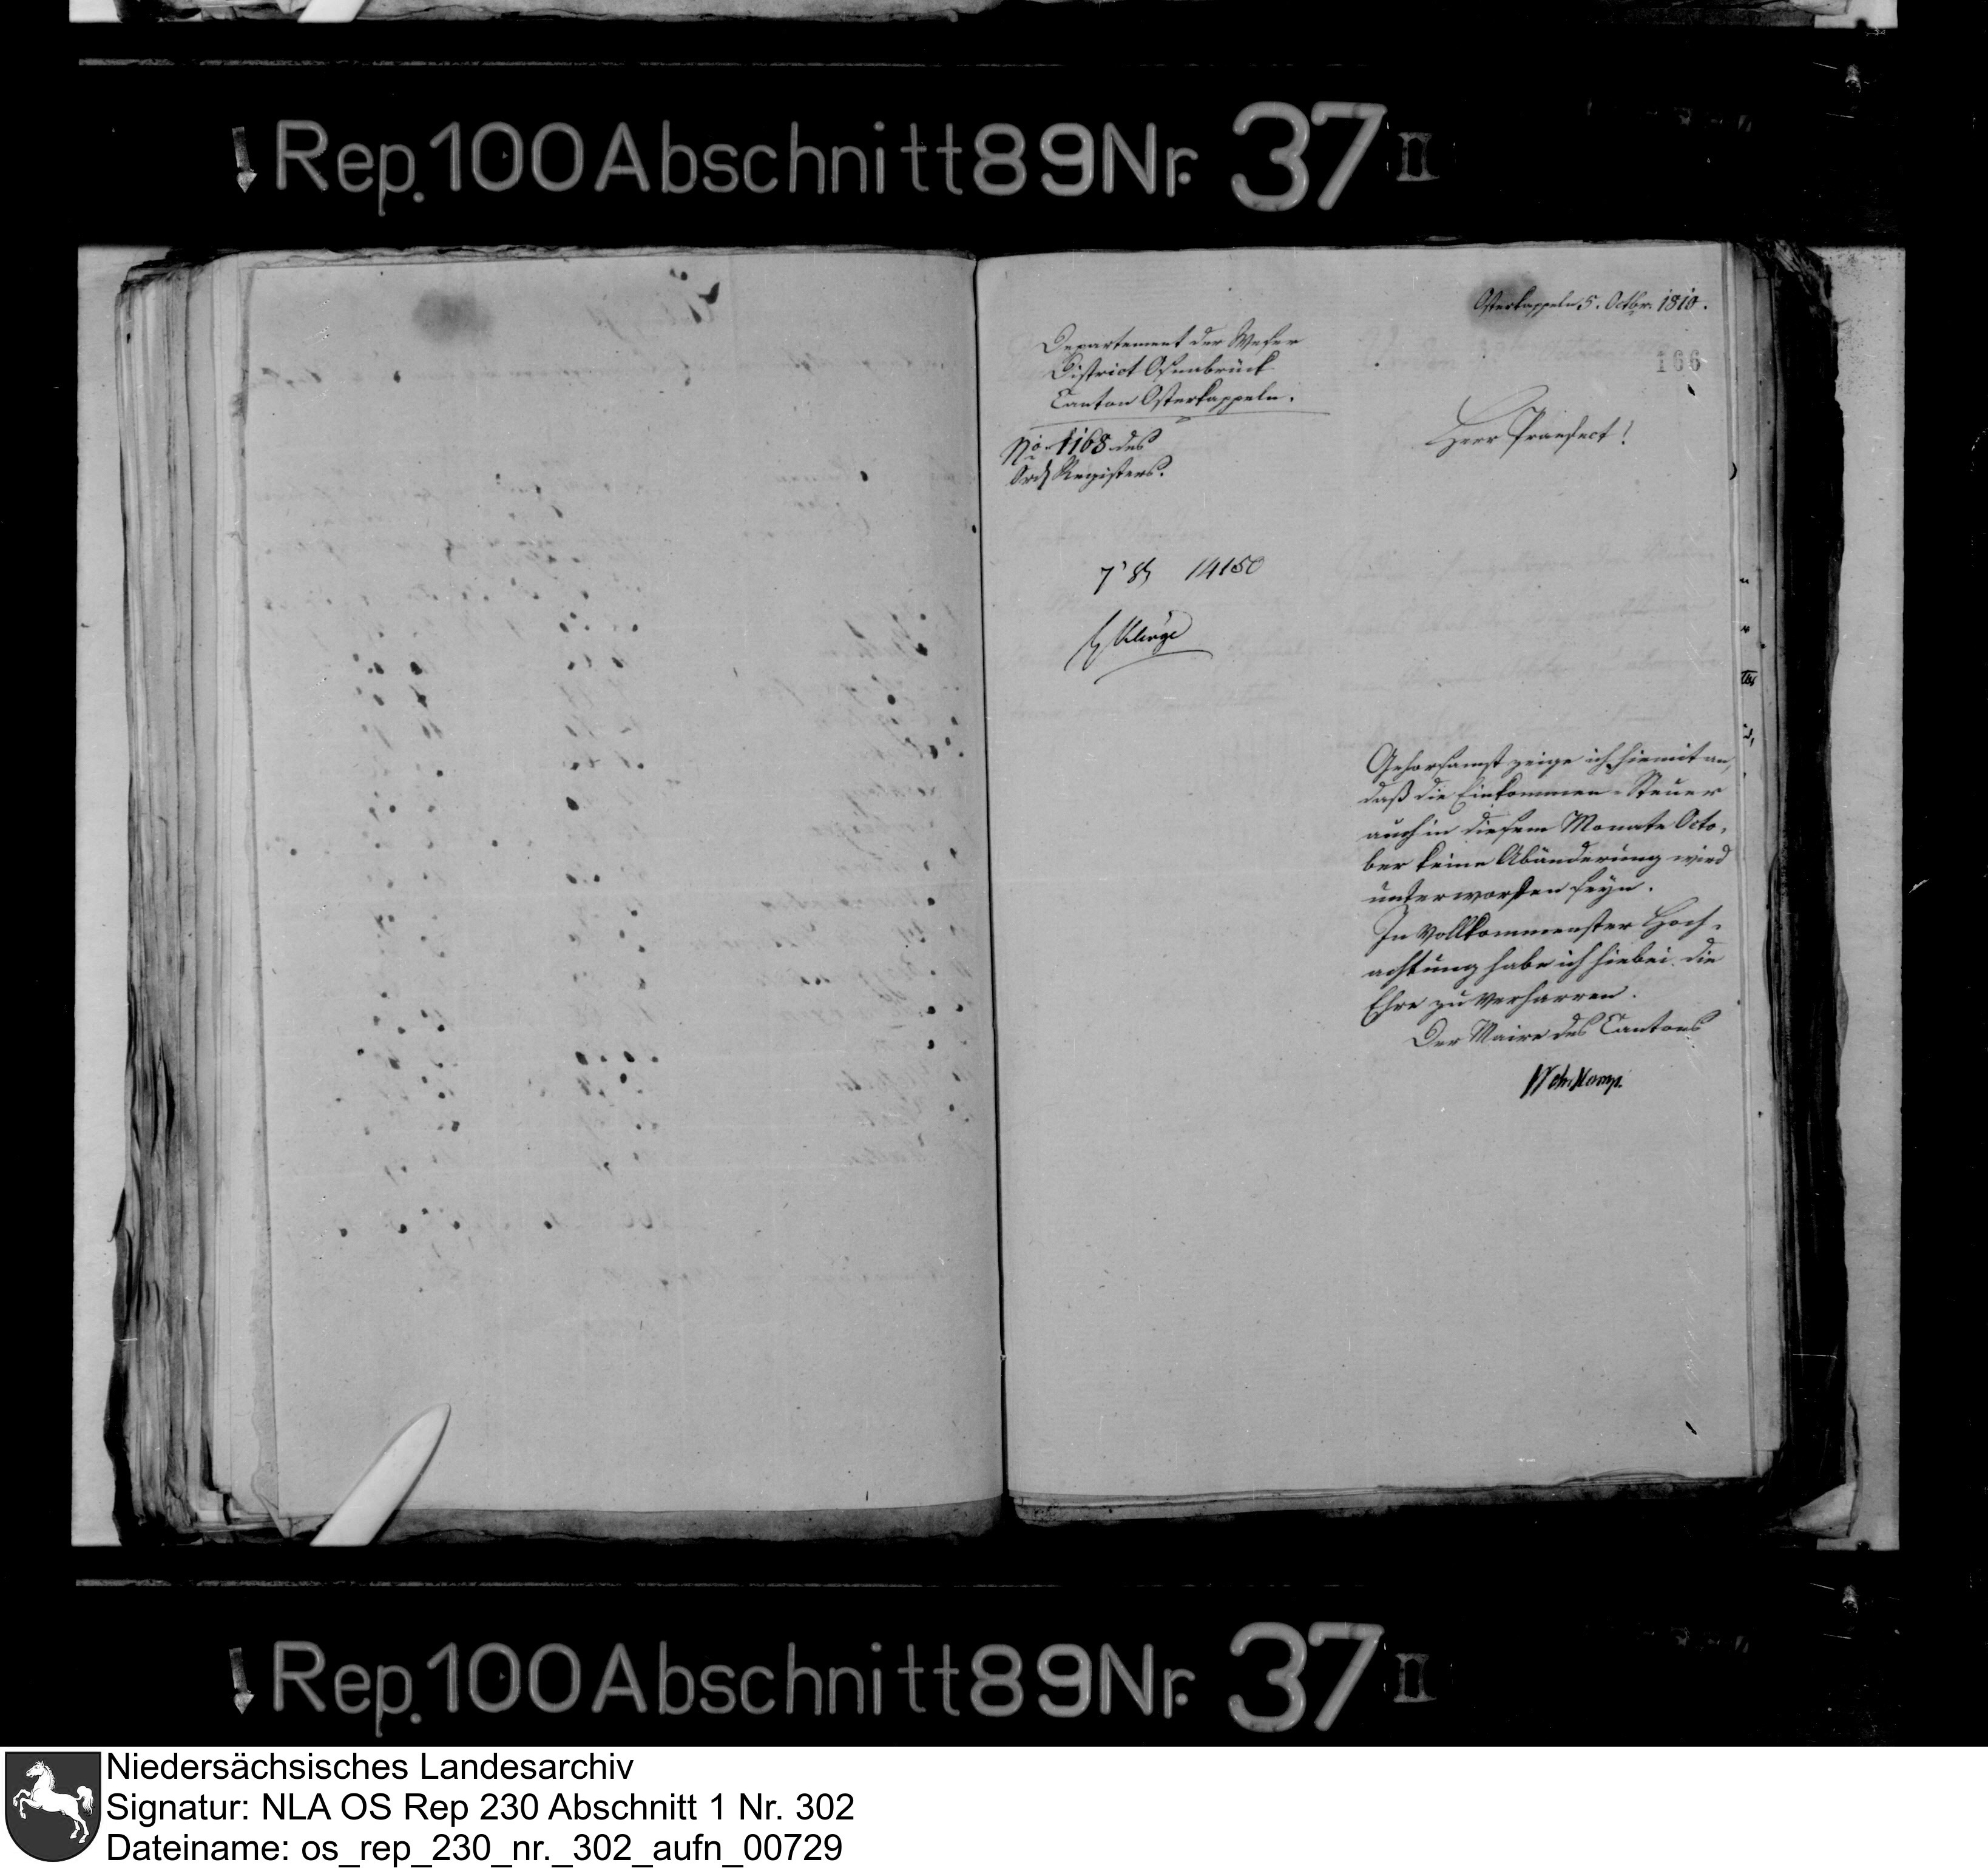 Rep. 100 Abschnitt 89 Nr. 37 II
Osterkappeln 5. Octbr. 1810.
166
Departement der Weser
District Osnabrück
Canton Osterkappeln.
No 1168 des
Ord. Registers.
Herr Praefect!
14150
Gehorsamst zeige ich hiemit an,
daß die Einkommen-Steuer
auch in diesem Monate Octo-
ber keine Abänderung wird
unterworfen seyn.
In vollkommenster Hoch-
achtung habe ich hiebei die
Ehre zu verharren.
Der Maire des Cantons
Rep. 100 Abschnitt 89 Nr. 37 II
Niedersächsisches Landesarchiv
Signatur: NLA OS Rep 230 Abschnitt 1 Nr. 302
Dateiname: os_rep_230_nr._302_aufn_00729